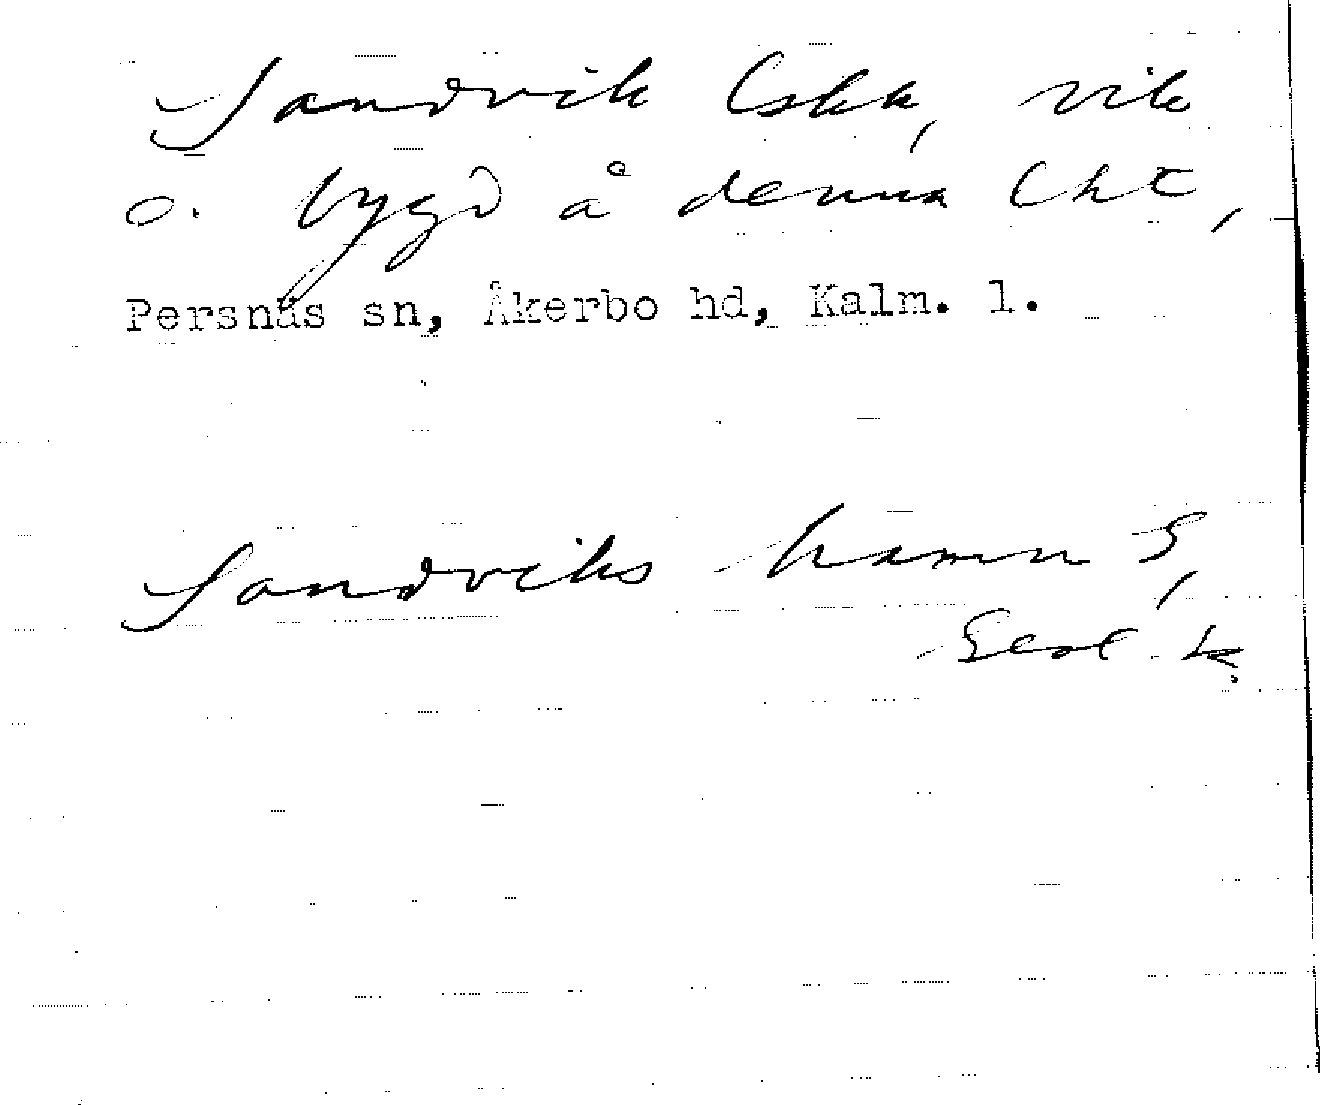 Sandvik lska, vik
o. bygd å denna lht,
Persnäs sn, Åkerbo hd, Kalm. l.
Sandviks hamn S,
Geol. k.